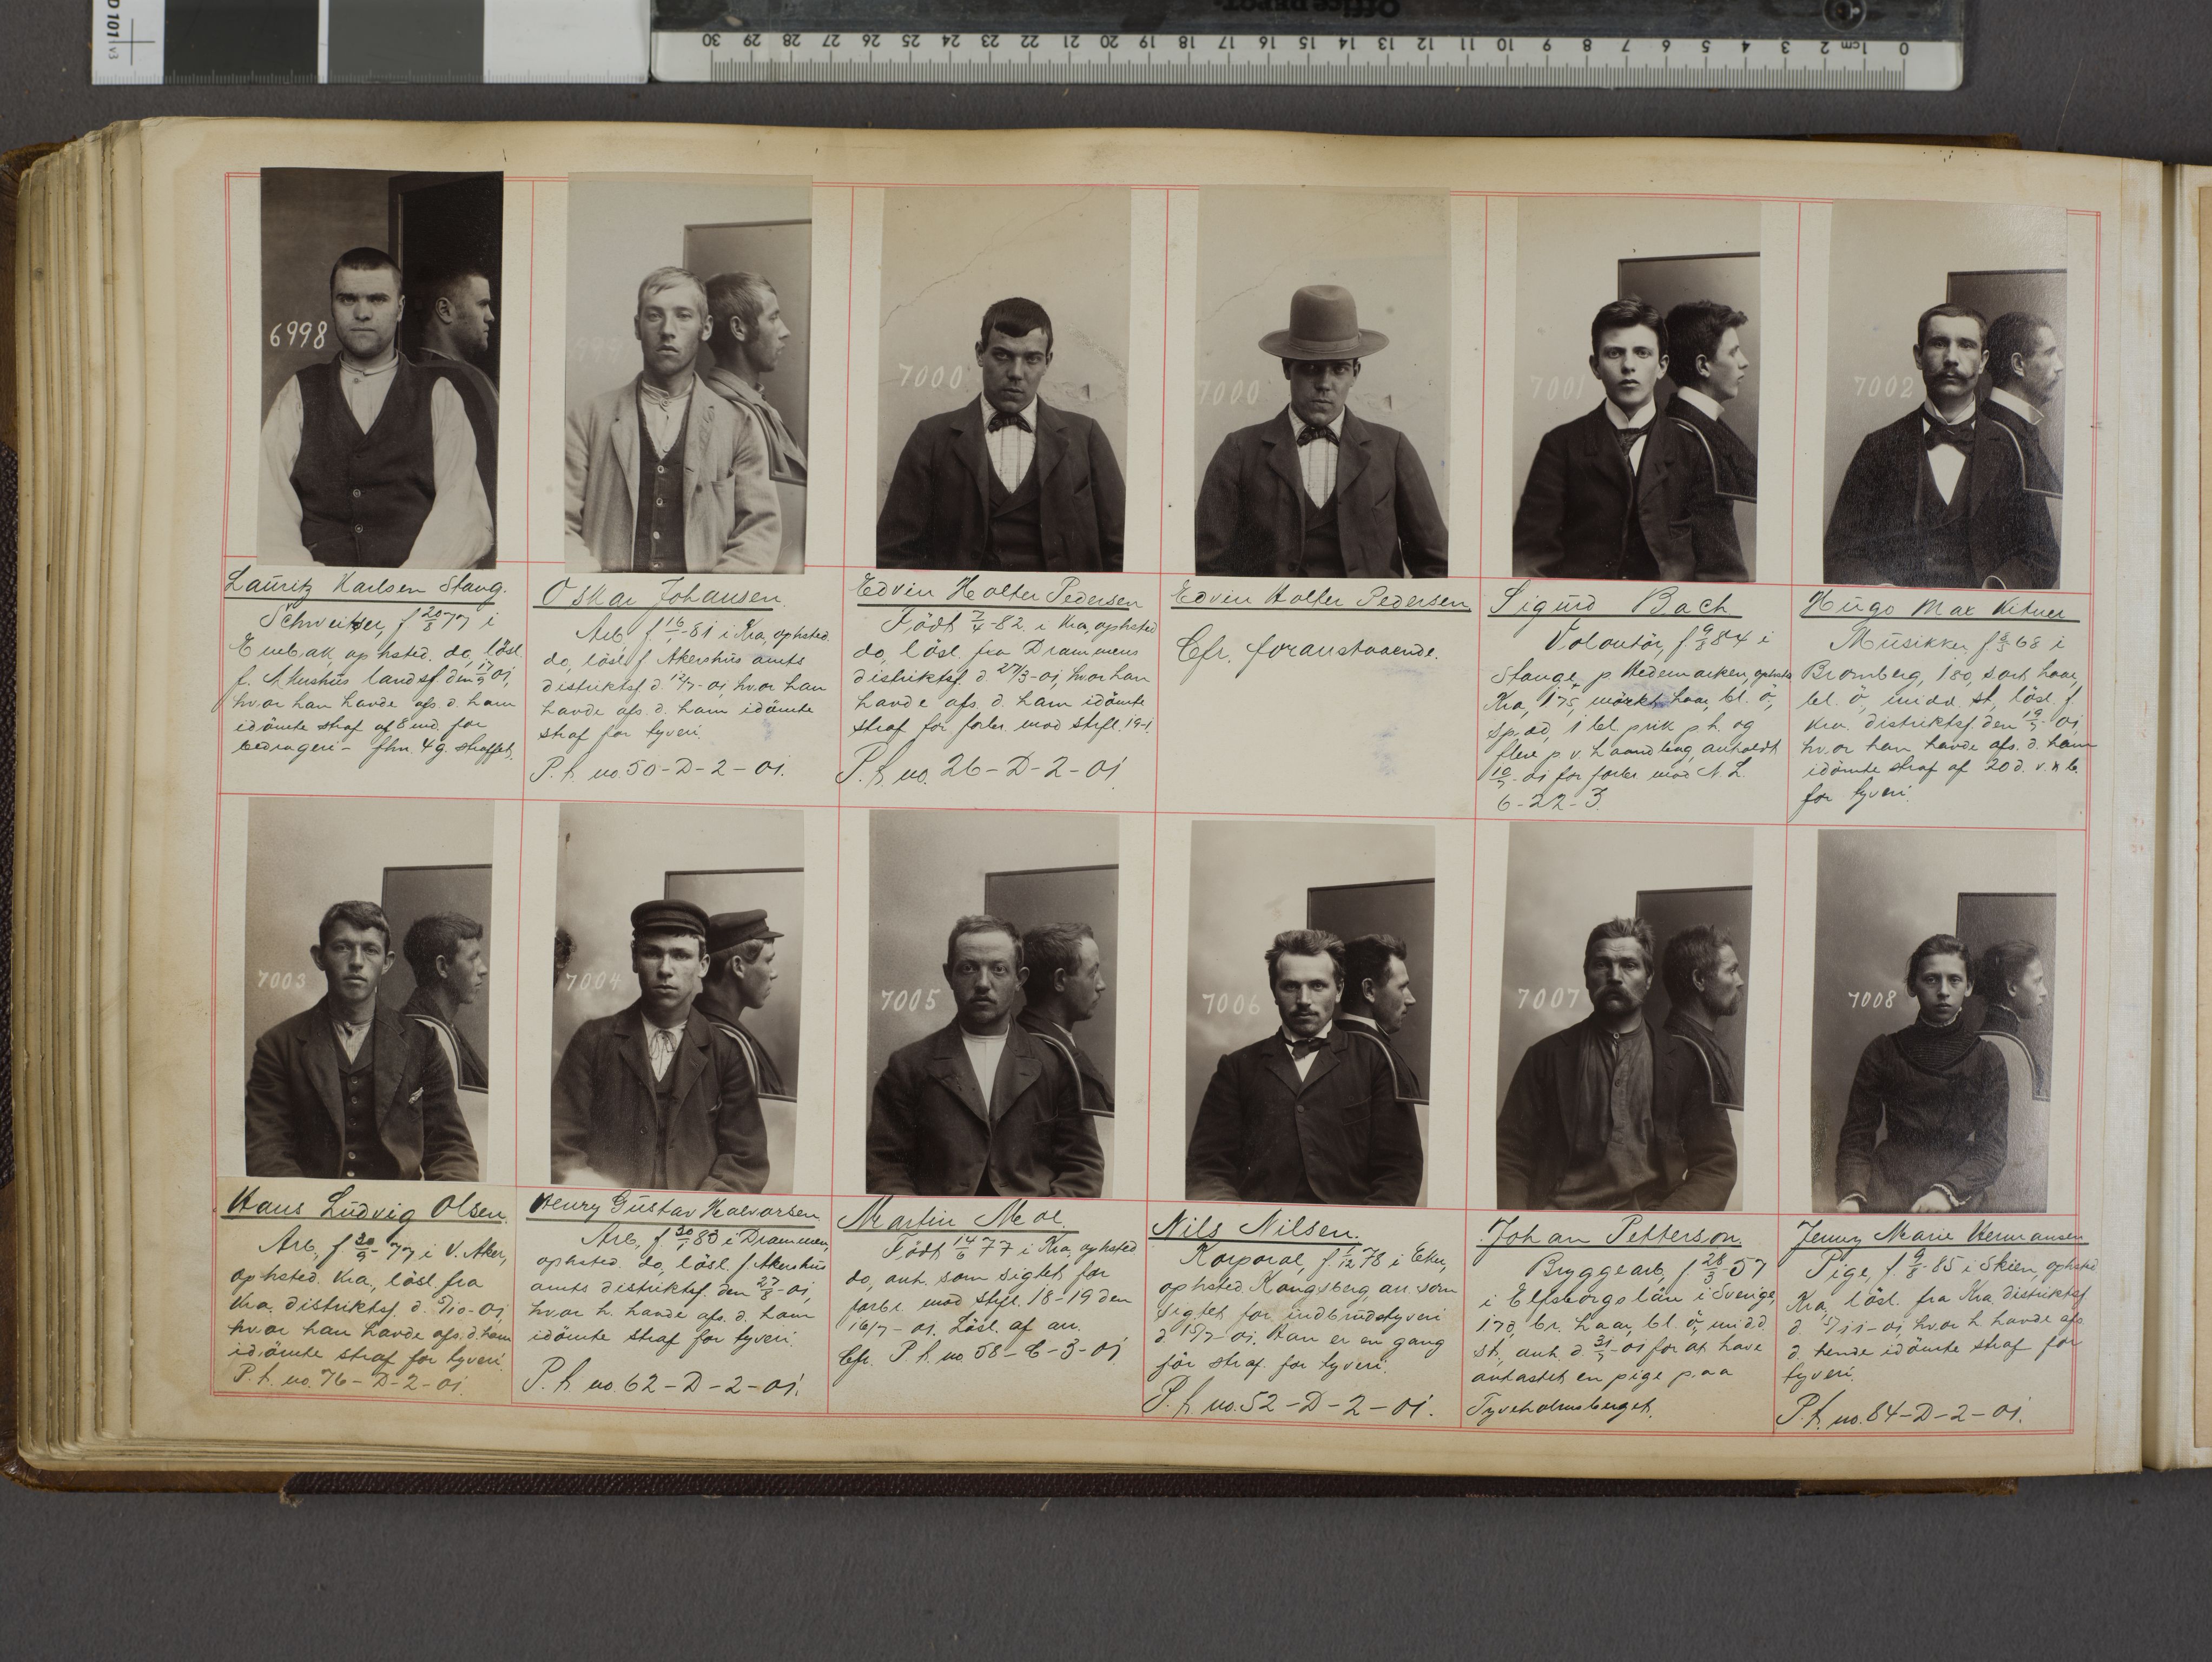 D 101 v3
Office DEPOT
30 29 28 27 26 25 24 23 22 21 20 19 18 17 16 15 14 13 12 11 10 9 8 7 6 5 4 3 2 1cm 0
6998
7000
7000
7001
7002
Lauritz Karlsen Staug.
Schweitzer, f 20/8 77 i
Enebak, ophsted. do, lösl.
f. Akershus landsf. den 01,
hvor han havde afs. d. ham
idömte straf af 8 md. for
bedrageri - fhn. 4 g. straffet.
Oskar Johansen.
Arb, f. 16/1-81 i Kra, ophsted.
do, lösl. f Akershus amts
distriktsf. d. 12/7-01, hvor han
havde afs. d. ham idömte
straf for tyveri.
P. h. no 50-D-2-01.
Edvin Holter Pedersen
Födt 7/4-82 i Kra, ophsted
do, lösl. fra Drammens
distriktsf. d. 27/3-01, hvor han
havde afs. d. ham idömte
straf for forbr. mod strfl. 19-1
P. h. no. 26-D-2-01
Edvin Holter Pedersen
Cfr. foranstaaende.
Sigurd Bach
Volontör, f. 9/3 84 i
Stange p. Hedemarken, ophsted
Kra, 175, mörkt haar, bl. ö,
sp. ad, 1 bl. prik p. h. og
flere p. v. haandled, anholdt
10/7-01 for forbr. mod N. L.
6-22-3.
Hugo Max Kitner
Musikker, f. 68 i
Bromberg, 180, sort haar,
bl. ö, midd. st, lösl. f.
Kra. distriktsf. den 19/7-01
hvor han havde afs. d. ham
idömte straf af 20 d. v. & b.
for tyveri.
7003
7004
7005
7006
7007
7008
Hans Ludvig Olsen.
Arb, f. 30/9-77 i V. Aker,
ophsted. Kra, lösl. fra
Kra. distriktsf. d. 5/10-01,
hvor han havde afs. d. ham
idömte straf for tyveri.
P. h. no. 76-D-2-01.
Henry Gustav Halvorsen.
Arb, f. 30/1 83 i Drammen,
ophsted. do, lösl. f Akershus
amts distriktsf. den 27/8-01,
hvor h. havde afs. d. ham
idömte straf for tyveri.
P. h. no. 62-D-2-01.
Martin Moe.
Födt 14/6 77 i Kra, ophsted
do, anh. som sigtet for
forbr. mod strfl. 18-19 den
16/7-01. Lösl. af arr.
Cfr. P. h. no. 58-C-3-01
Nils Nilsen.
Korporal, f. 1/12 78 i Eker,
ophsted. Kongsberg, arr. som
sigtet for indbrudstyveri
d. 15/7-01. Han er en gang
för straf. for tyveri.
P. h. no. 52-D-2-01.
Johan Petterson
Bryggearb, f. 28/3-57
i Elfsborgs län i Sverige,
178, br. haar, bl. ö, midd.
st, anh. d. 31/7-01 for at have
antastet en pige paa
Tyveholmsberget.
Jenny Marie Hermansen
Pige, f. 9/8-85 i Skien, ophsted
Kra, lösl. fra Kra. distriktsf.
d. 15/11-01, hvor h havde afs
d hende idömte straf for
tyveri.
P. h. no. 84-D-2-01.